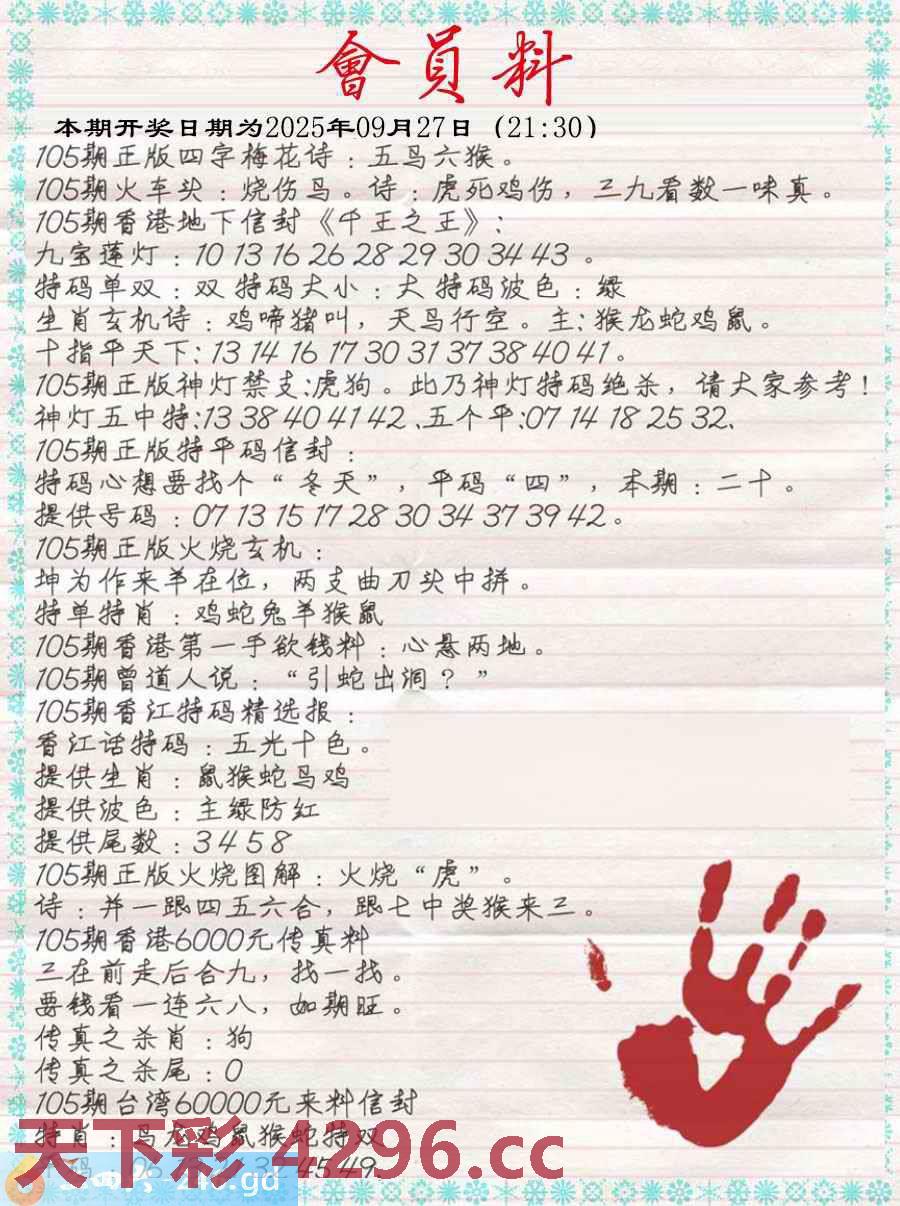 會員料
本期开奖日期为2025年09月27日（21:30）
105期正版四字梅花诗：五鸟六猴。
105期火车头：烧伤鸟。诗：虎死鸡伤，三九看数一味真。
105期香港地下信封《千王之王》:
九宝莲灯：10 13 16 26 28 29 30 34 43 。
特码单双：双 特码大小：大 特码波色：绿
生肖玄机诗：鸡啼猪叫，天鸟行空。主:猴龙蛇鸡鼠。
十指平天下:13 14 16 17 30 31 37 38 40 41。
105期正版神灯禁支:虎狗。此乃神灯特码绝杀，请大家参考！
神灯五中特:13 38 40 41 42 、五个平:07 14 18 25 32、
105期正版特平码信封：
特码心想要找个“冬天”，平码“四”，本期：二十。
提供号码：07 13 15 17 28 30 34 37 39 42。
105期正版火烧玄机：
坤为作来羊在位，两支曲刀头中拼。
特单特肖：鸡蛇兔羊猴鼠
105期香港第一手欲钱料：心悬两地。
105期曾道人说：“引蛇出洞？”
105期香江特码精选报：
香江话特码：五光十色。
提供生肖：鼠猴蛇鸟鸡
提供波色：主绿防红
提供尾数：3 4 5 8
105期正版火烧图解：火烧“虎”。
诗：并一跟四五六合，跟七中奖猴来三。
105期香港6000元传真料
三在前走后合九，找一找。
要钱看一连六八，如期旺。
传真之杀肖：狗
传真之杀尾：0
105期台湾60000元来料信封
特肖：鸟龙鸡鼠猴蛇特双
天下彩4296.cc
45 49